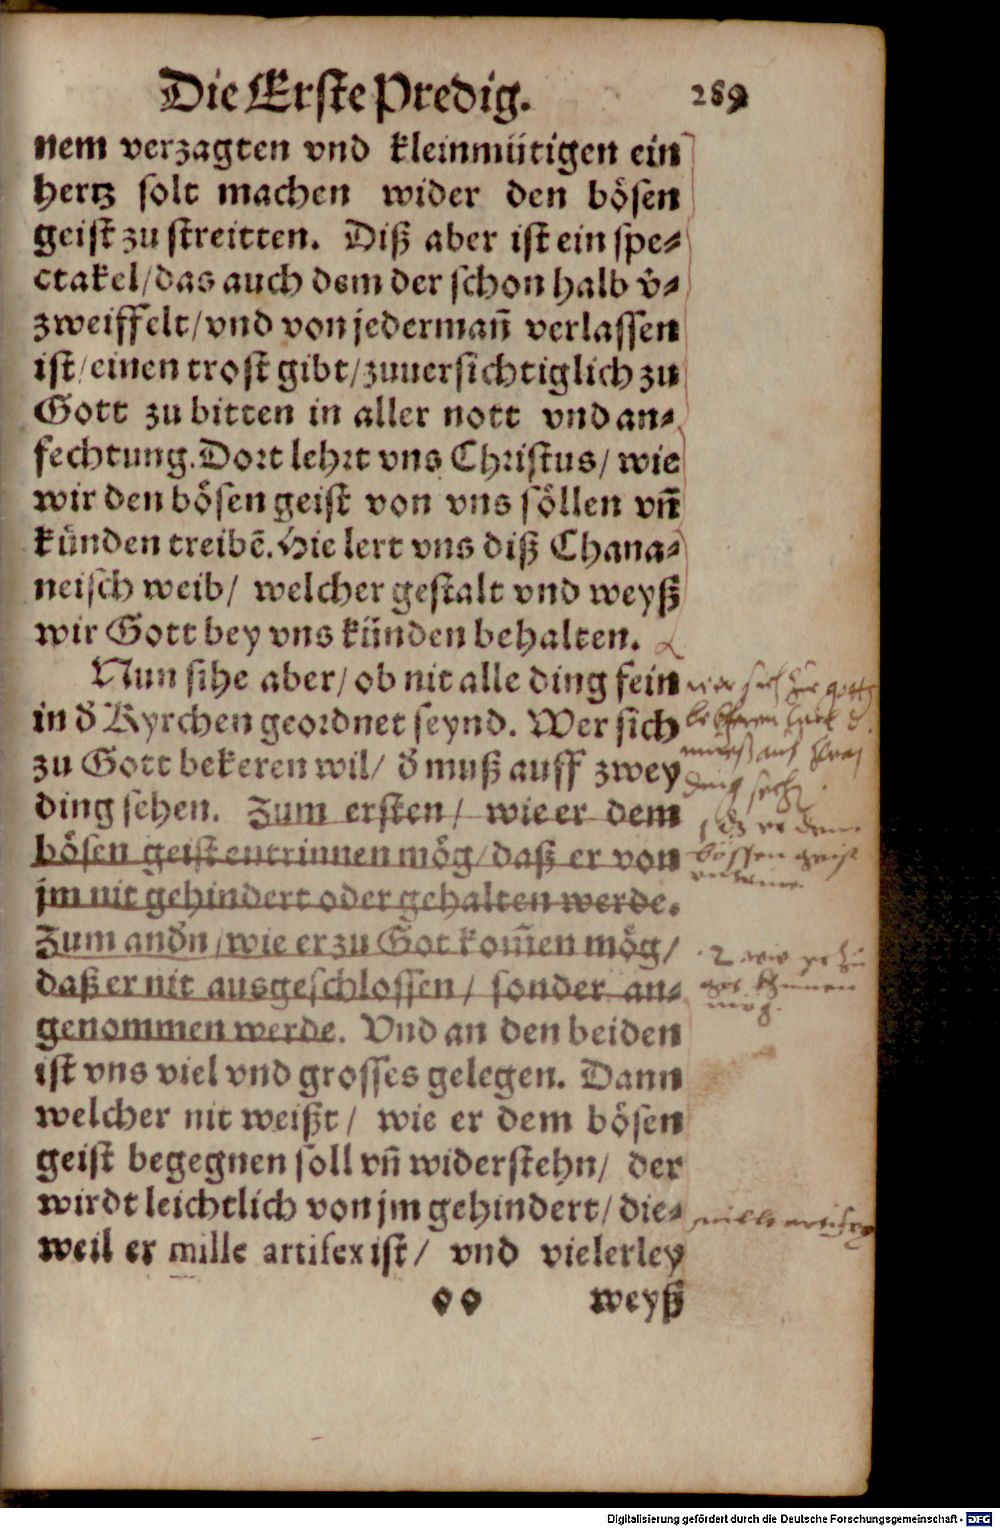 Die Erste Predig. 289
nem verzagten vnd kleinmütigen ein
hertz solt machen wider den bösen
geist zu streitten. Diß aber ist ein spe⸗
ctakel/das auch dem der schon halb v̊⸗
zweiffelt/vnd von jedermañ verlassen
ist/einen trost gibt/zuuersichtiglich zu
Gott zu bitten in aller nott vnd an⸗
fechtung. Dort lehrt vns Christus/ wie
wir den bösen geist von vns söllen vñ
künden treibẽ. Hie lert vns diß Chana⸗
neisch weib/ welcher gestalt vnd weyß
wir Gott bey vns künden behalten.
Nun sihe aber/ ob nit alle ding fein
in ð Kyrchen geordnet seynd. Wer sich
zu Gott bekeren wil/ ð muß auff zwey
ding sehen. Zum ersten/ wie er dem
bösen geist entrinnen mög/daß er von
jm nit gehindert oder gehalten werde.
Zum anðn/wie er zu Got kom̃en mög/
daß er nit ausgeschlossen/ sonder an⸗
genommen werde. Vnd an den beiden
ist vns viel vnd grosses gelegen. Dann
welcher nit weißt/ wie er dem bösen
geist begegnen soll vñ widerstehn/ der
wirdt leichtlich von jm gehindert/ die⸗
weil er mille artifex ist/ vnd vielerley
weyß
mille artifex
Digitalisierung gefördert durch die Deutsche Forschungsgemeinschaft - DFG